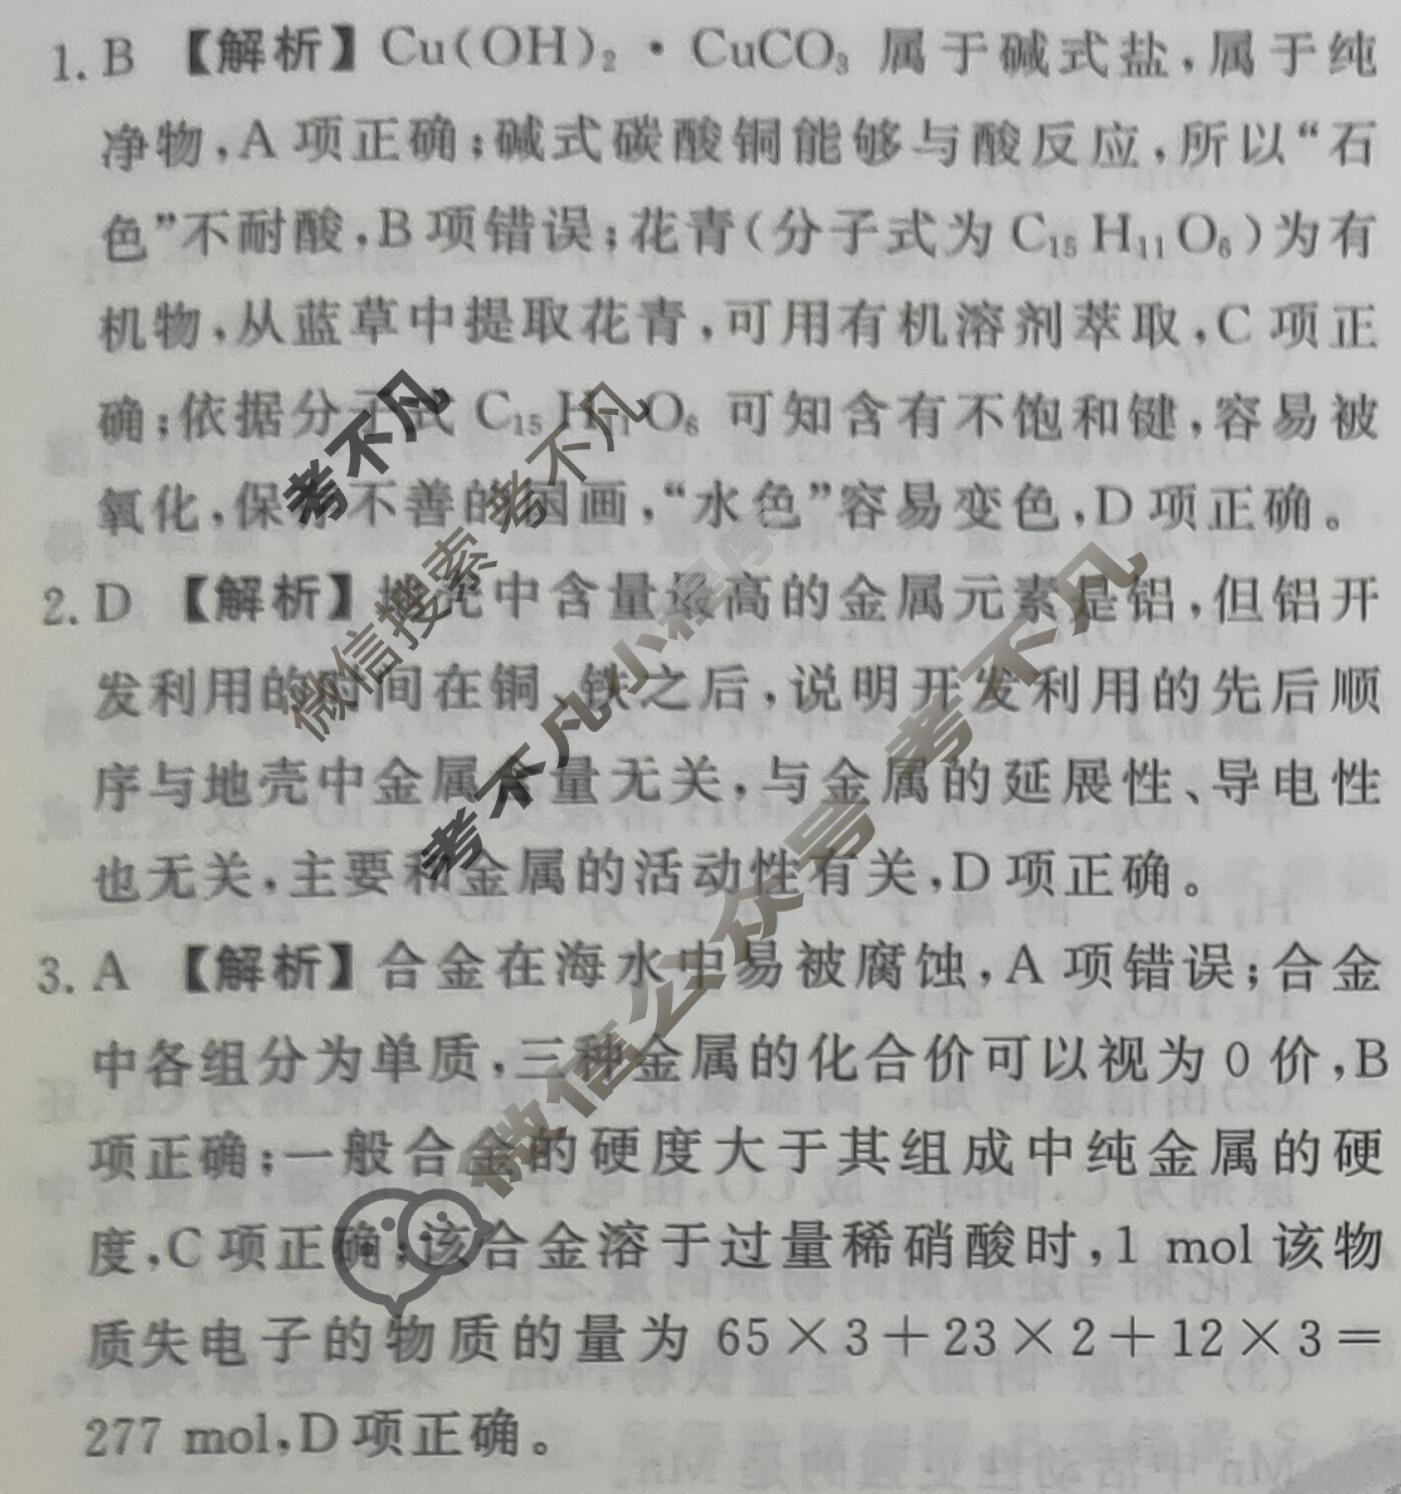 1. B 【解析】Cu(OH)₂·CuCO₃ 属于碱式盐,属于纯
净物,A 项正确;碱式碳酸铜能够与酸反应,所以“石
色”不耐酸,B 项错误;花青(分子式为 C₁₅H₁₁O₆)为有
机物,从蓝草中提取花青,可用有机溶剂萃取,C 项正
确;依据分子式 C₁₅H₁₁O₆ 可知含有不饱和键,容易被
氧化,保 不善的国画,“水色”容易变色,D 项正确。
2. D 【解析】地壳中含量最高的金属元素是铝,但铝开
发利用的时间在铜、铁之后,说明开发利用的先后顺
序与地壳中金属 量无关,与金属的延展性、导电性
也无关,主要和金属的活动性有关,D 项正确。
3. A 【解析】合金在海水中易被腐蚀,A 项错误;合金
中各组分为单质,三种金属的化合价可以视为 0 价,B
项正确;一般合金的硬度大于其组成中纯金属的硬
度,C 项正确;该合金溶于过量稀硝酸时,1 mol 该物
质失电子的物质的量为 65×3+23×2+12×3=
277 mol,D 项正确。
考不凡
微信搜索 考不凡
考不凡小程序
微信公众号 考不凡